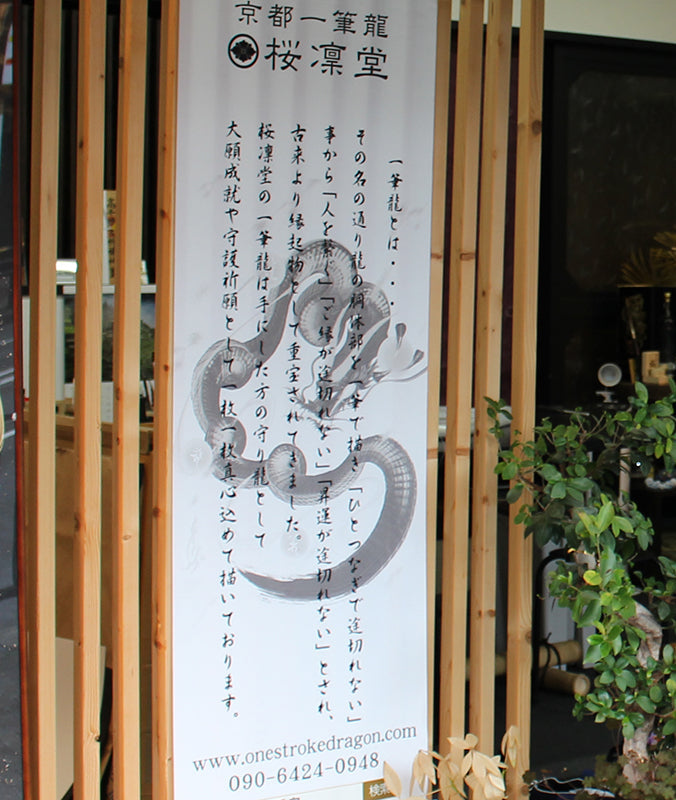 京都一筆龍
桜凛堂
一筆龍とは・・・
その名の通り龍の胴体部を一筆で描き「ひとつなぎで途切れない」
事から「人を繋ぐ」「ご縁が途切れない」「昇運が途切れない」とされ、
古来より縁起物として重宝されてきました。
桜凛堂の一筆龍は手にした方の守り龍として
大願成就や守護祈願として一枚一枚真心込めて描いております。
www.onestrokedragon.com
090-6424-0948
検索